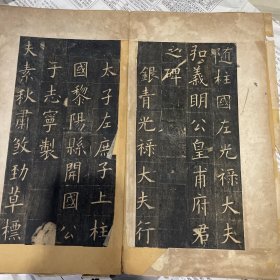 随柱國左光禄大夫
弘義明公皇甫府君
之碑
銀青光禄大夫行
太子左庶子上柱
國黎陽縣開國公
于志寧製
夫素秋肅煞勁草標